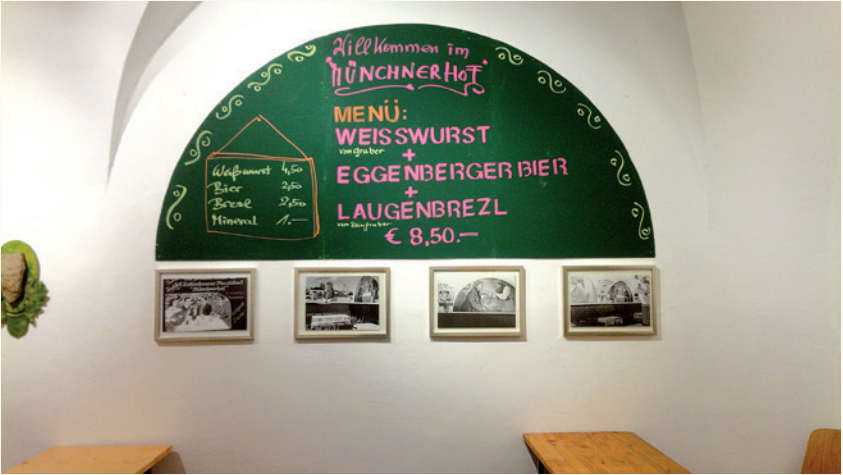 Willkommen im
MÜNCHNERHOF
MENÜ:
WEISSWURST
von Gruber
+
EGGENBERGER BIER
+
LAUGENBREZL
€ 8,50.—
Weißwurst 4,50
Bier 2,50
Brezl 2,50
Mineral 1.—
"Münchnerhof"